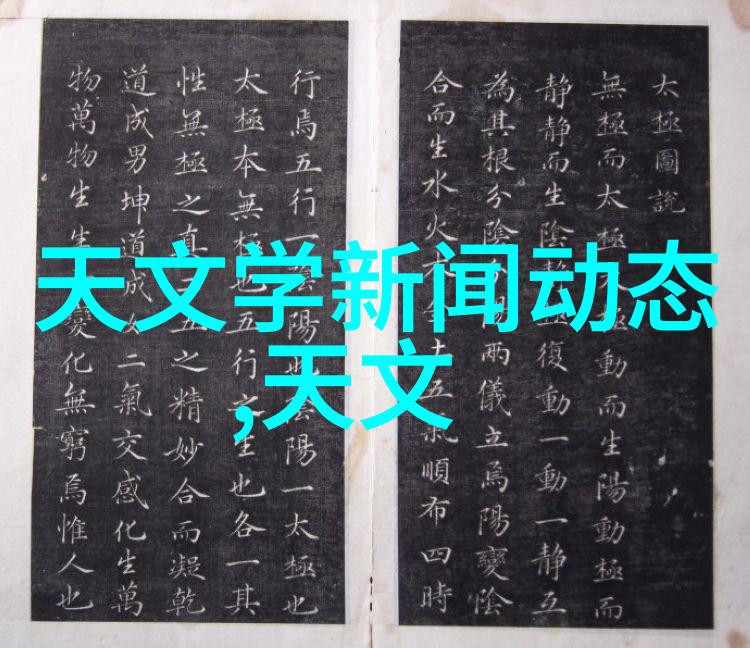 太極圖說
無極而太極極動而生陽動極而
静静而生陰復動一動一静互
為其根分陰兩儀立焉陽變陰
合而生水火五氣順布四時
行焉五行一陰陽也陰陽一太極也
太極本無極也五行之生也各一其
性無極之真五之精妙合而凝乾
道成男坤道成女二氣交感化生萬
物萬物生生變化無窮焉惟人也
天文学新闻动态
,天文